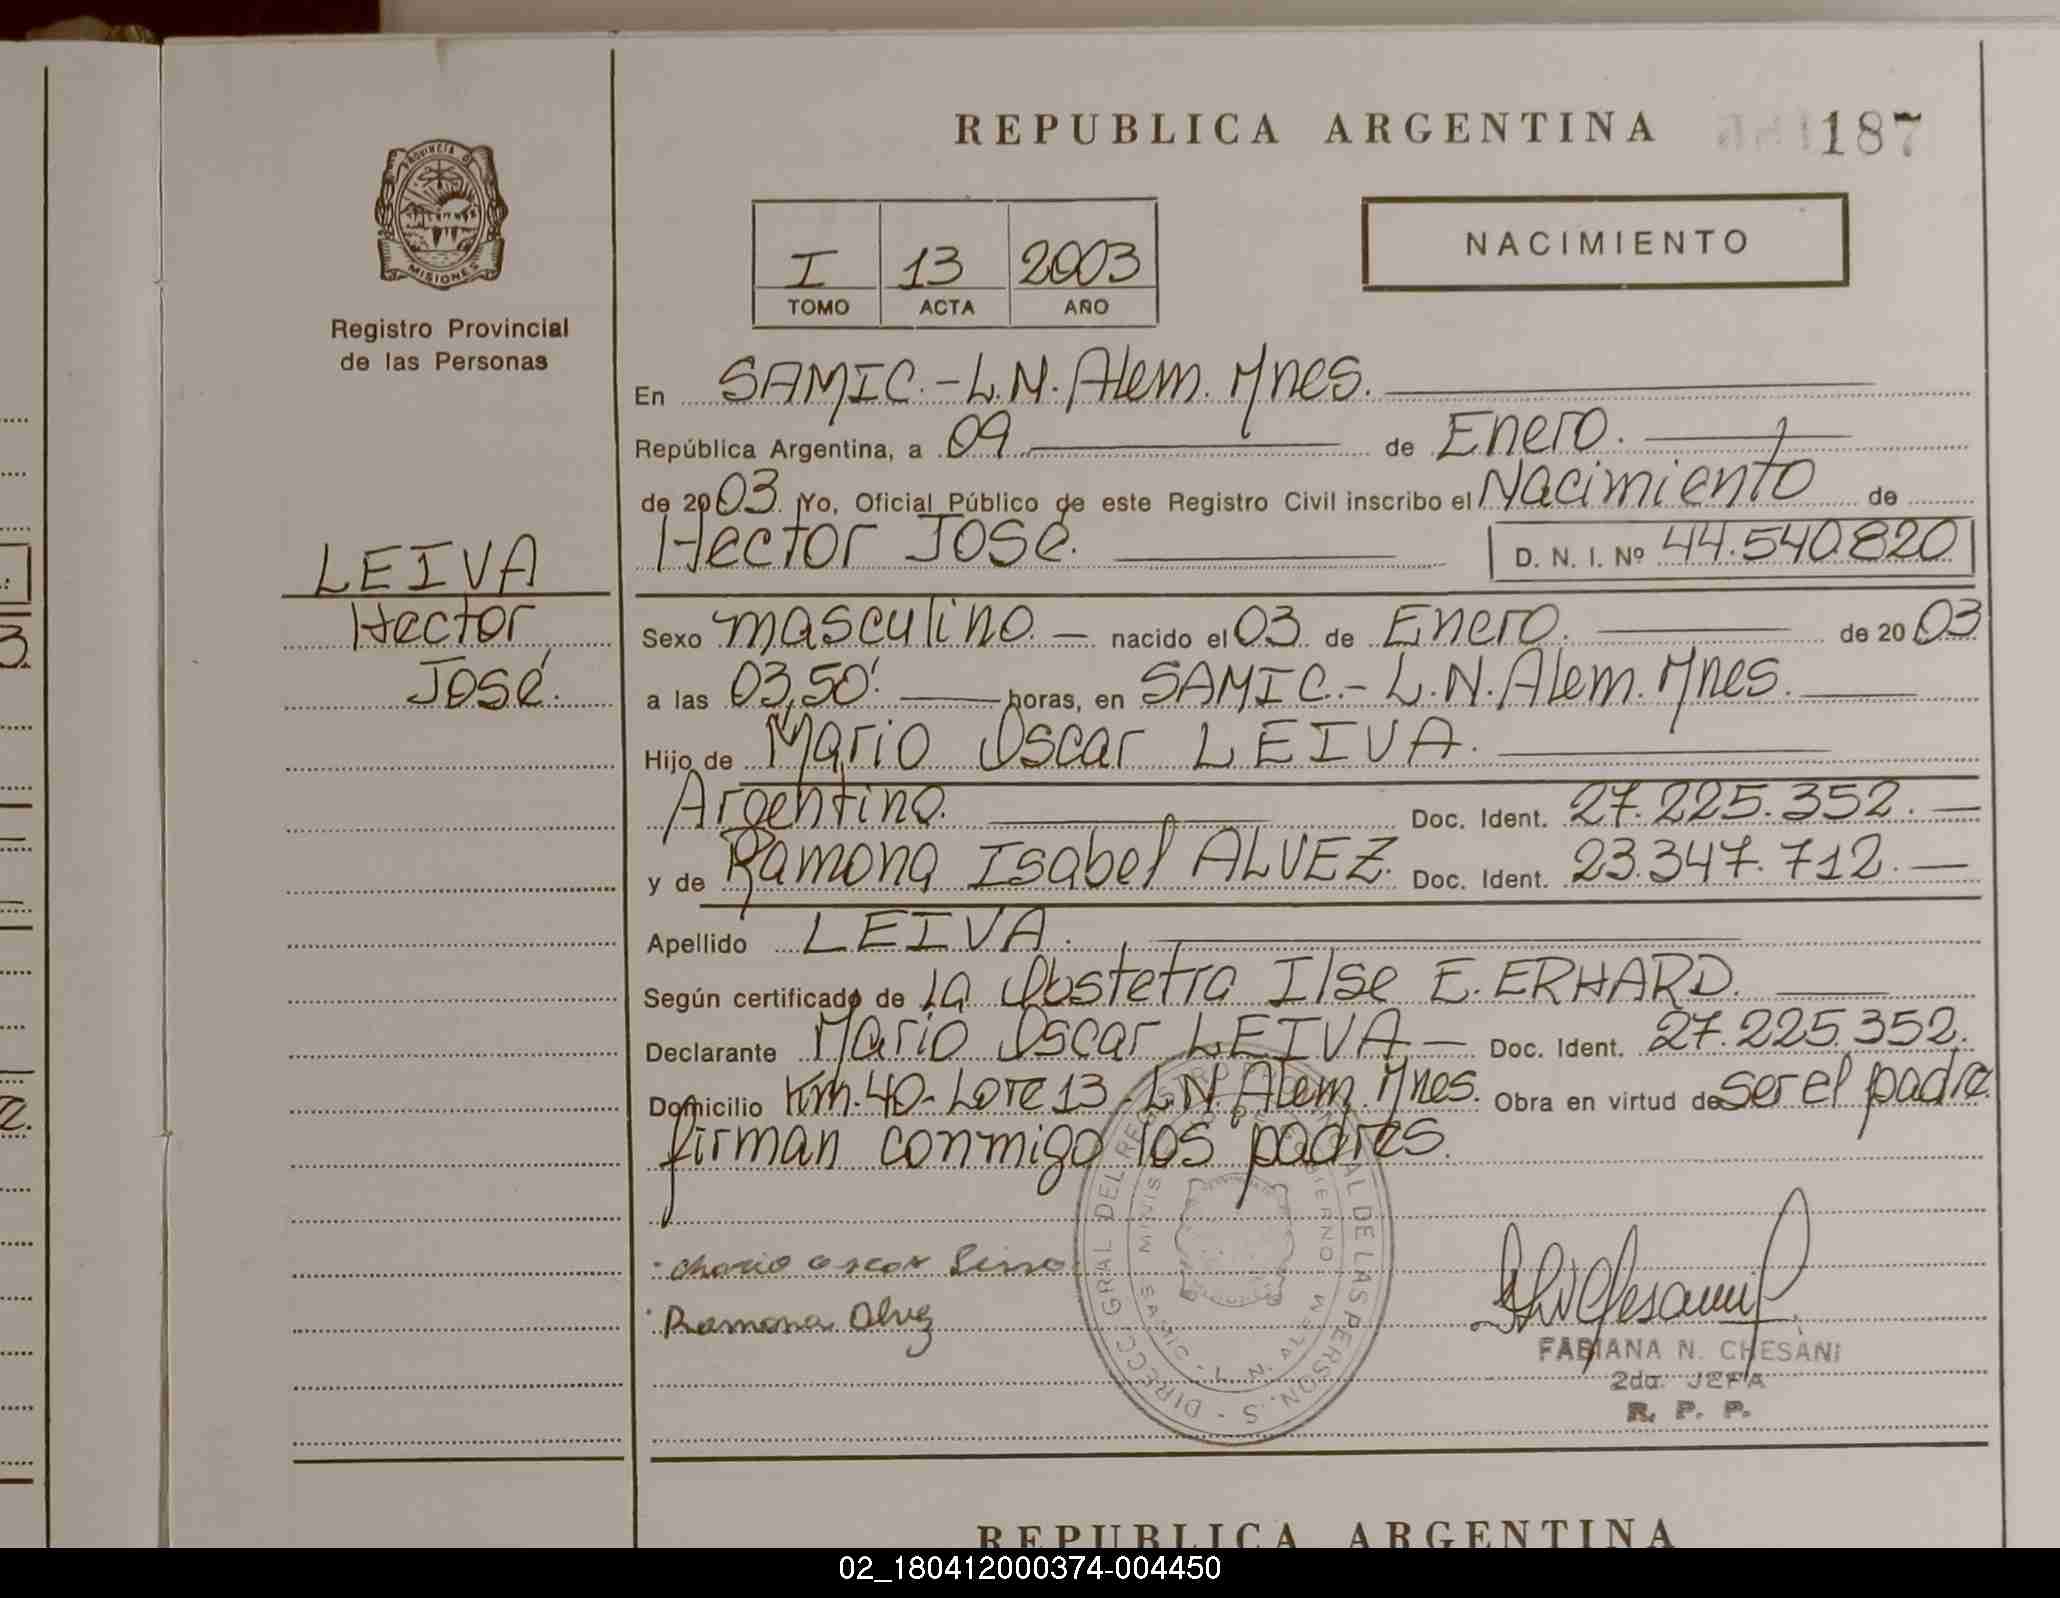 REPUBLICA ARGENTINA 187
PROVINCIA DE
MISIONES
Registro Provincial
de las Personas
I 13 2003
TOMO ACTA AÑO
NACIMIENTO
En SAMIC.-L.N.Alem.Mnes.
República Argentina, a 09 de Enero.
de 2003. Yo, Oficial Público de este Registro Civil inscribo el Nacimiento de
Hector José. D. N. I. Nº 44.540.820
LEIVA
Hector
José.
Sexo masculino.— nacido el 03 de Enero. de 2003
a las 03,50'. horas, en SAMIC.-L.N.Alem.Mnes.
Hijo de Mario Oscar LEIVA.
Argentino. Doc. Ident. 27.225.352.—
y de Ramona Isabel ALVEZ. Doc. Ident. 23.347.712.—
Apellido LEIVA.
Según certificado de la Obstetra Ilse E. ERHARD.
Declarante Mario Oscar LEIVA — Doc. Ident. 27.225.352.
Domicilio Km.40-Lote 13-L.N.Alem.Mnes. Obra en virtud de ser el padre
firman conmigo los padres.
Mario Oscar
Ramona Alvez
DIRECC. GRAL DEL REGISTRO DE LAS PERSON.S
SAMIC - L. N. ALEM
FABIANA N. CHESANI
2da. JEFA
R. P. P.
REPUBLICA ARGENTINA
02_180412000374-004450